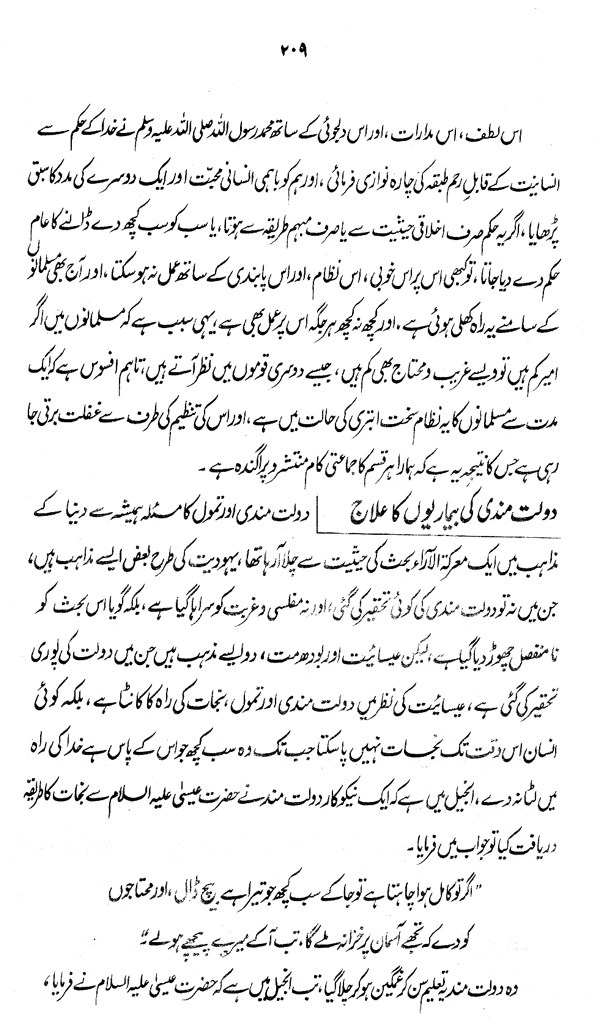 ۲۰۹
اس لطف، اس مدارات، اور اس دلجوئی کے ساتھ محمد رسول اللہ صلی اللہ علیہ وسلم نے خدا کے حکم سے
انسانیت کے قابلِ رحم طبقہ کی چارہ نوازی فرمائی، اور ہم کو باہمی انسانی محبّت اور ایک دوسرے کی مدد کا سبق
پڑھایا، اگر یہ حکم صرف اخلاقی حیثیت سے یا صرف مبہم طریقہ سے ہوتا، یا سب کو سب کچھ دے ڈالنے کا عام
حکم دے دیا جاتا، تو کبھی اس پر اس خوبی، اس نظام، اور اس پابندی کے ساتھ عمل نہ ہو سکتا، اور آج بھی مسلمانوں
کے سامنے یہ راہ کھلی ہوئی ہے، اور کچھ نہ کچھ ہر جگہ اس پر عمل بھی ہے، یہی سبب ہے کہ مسلمانوں میں اگر
امیر کم ہیں تو ویسے غریب و محتاج بھی کم ہیں، جیسے دوسری قوموں میں نظر آتے ہیں، تاہم افسوس ہے کہ ایک
مدت سے مسلمانوں کا یہ نظام سخت ابتری کی حالت میں ہے، اور اس کی تنظیم کی طرف سے غفلت برتی جا
رہی ہے جس کا نتیجہ یہ ہے کہ ہمارا ہر قسم کا جماعتی کام منتشر و پراگندہ ہے۔
دولت مندی کی بیماریوں کا علاج دولت مندی اور تمول کا مسئلہ ہمیشہ سے دنیا کے
مذاہب میں ایک معرکۃ الآراء بحث کی حیثیت سے چلا آ رہا تھا، یہودیت کی طرح بعض ایسے مذاہب ہیں،
جن میں نہ تو دولت مندی کی کوئی تحقیر کی گئی، اور نہ مفلسی و غربت کو سراہا گیا ہے، بلکہ گویا اس بحث کو
نا منفصل چھوڑ دیا گیا ہے، لیکن عیسائیت اور بودھ مت، دو ایسے مذہب ہیں جن میں دولت کی پوری
تحقیر کی گئی ہے، عیسائیت کی نظر میں دولت مندی اور تمول، نجات کی راہ کا کانٹا ہے، بلکہ کوئی
انسان اس وقت تک نجات نہیں پا سکتا جب تک وہ سب کچھ جو اس کے پاس ہے خدا کی راہ
میں لٹا نہ دے، انجیل میں ہے کہ ایک نیکوکار دولت مند نے حضرت عیسیٰ علیہ السلام سے نجات کا طریقہ
دریافت کیا تو جواب میں فرمایا۔
"اگر تو کامل ہوا چاہتا ہے تو جا کے سب کچھ جو تیرا ہے بیچ ڈال، اور محتاجوں
کو دے کہ تجھے آسمان پر خزانہ ملے گا، تب آ کے میرے پیچھے ہو لے"
وہ دولت مند یہ تعلیم سن کر غمگین ہو کر چلا گیا، تب انجیل میں ہے کہ حضرت عیسیٰ علیہ السلام نے فرمایا،